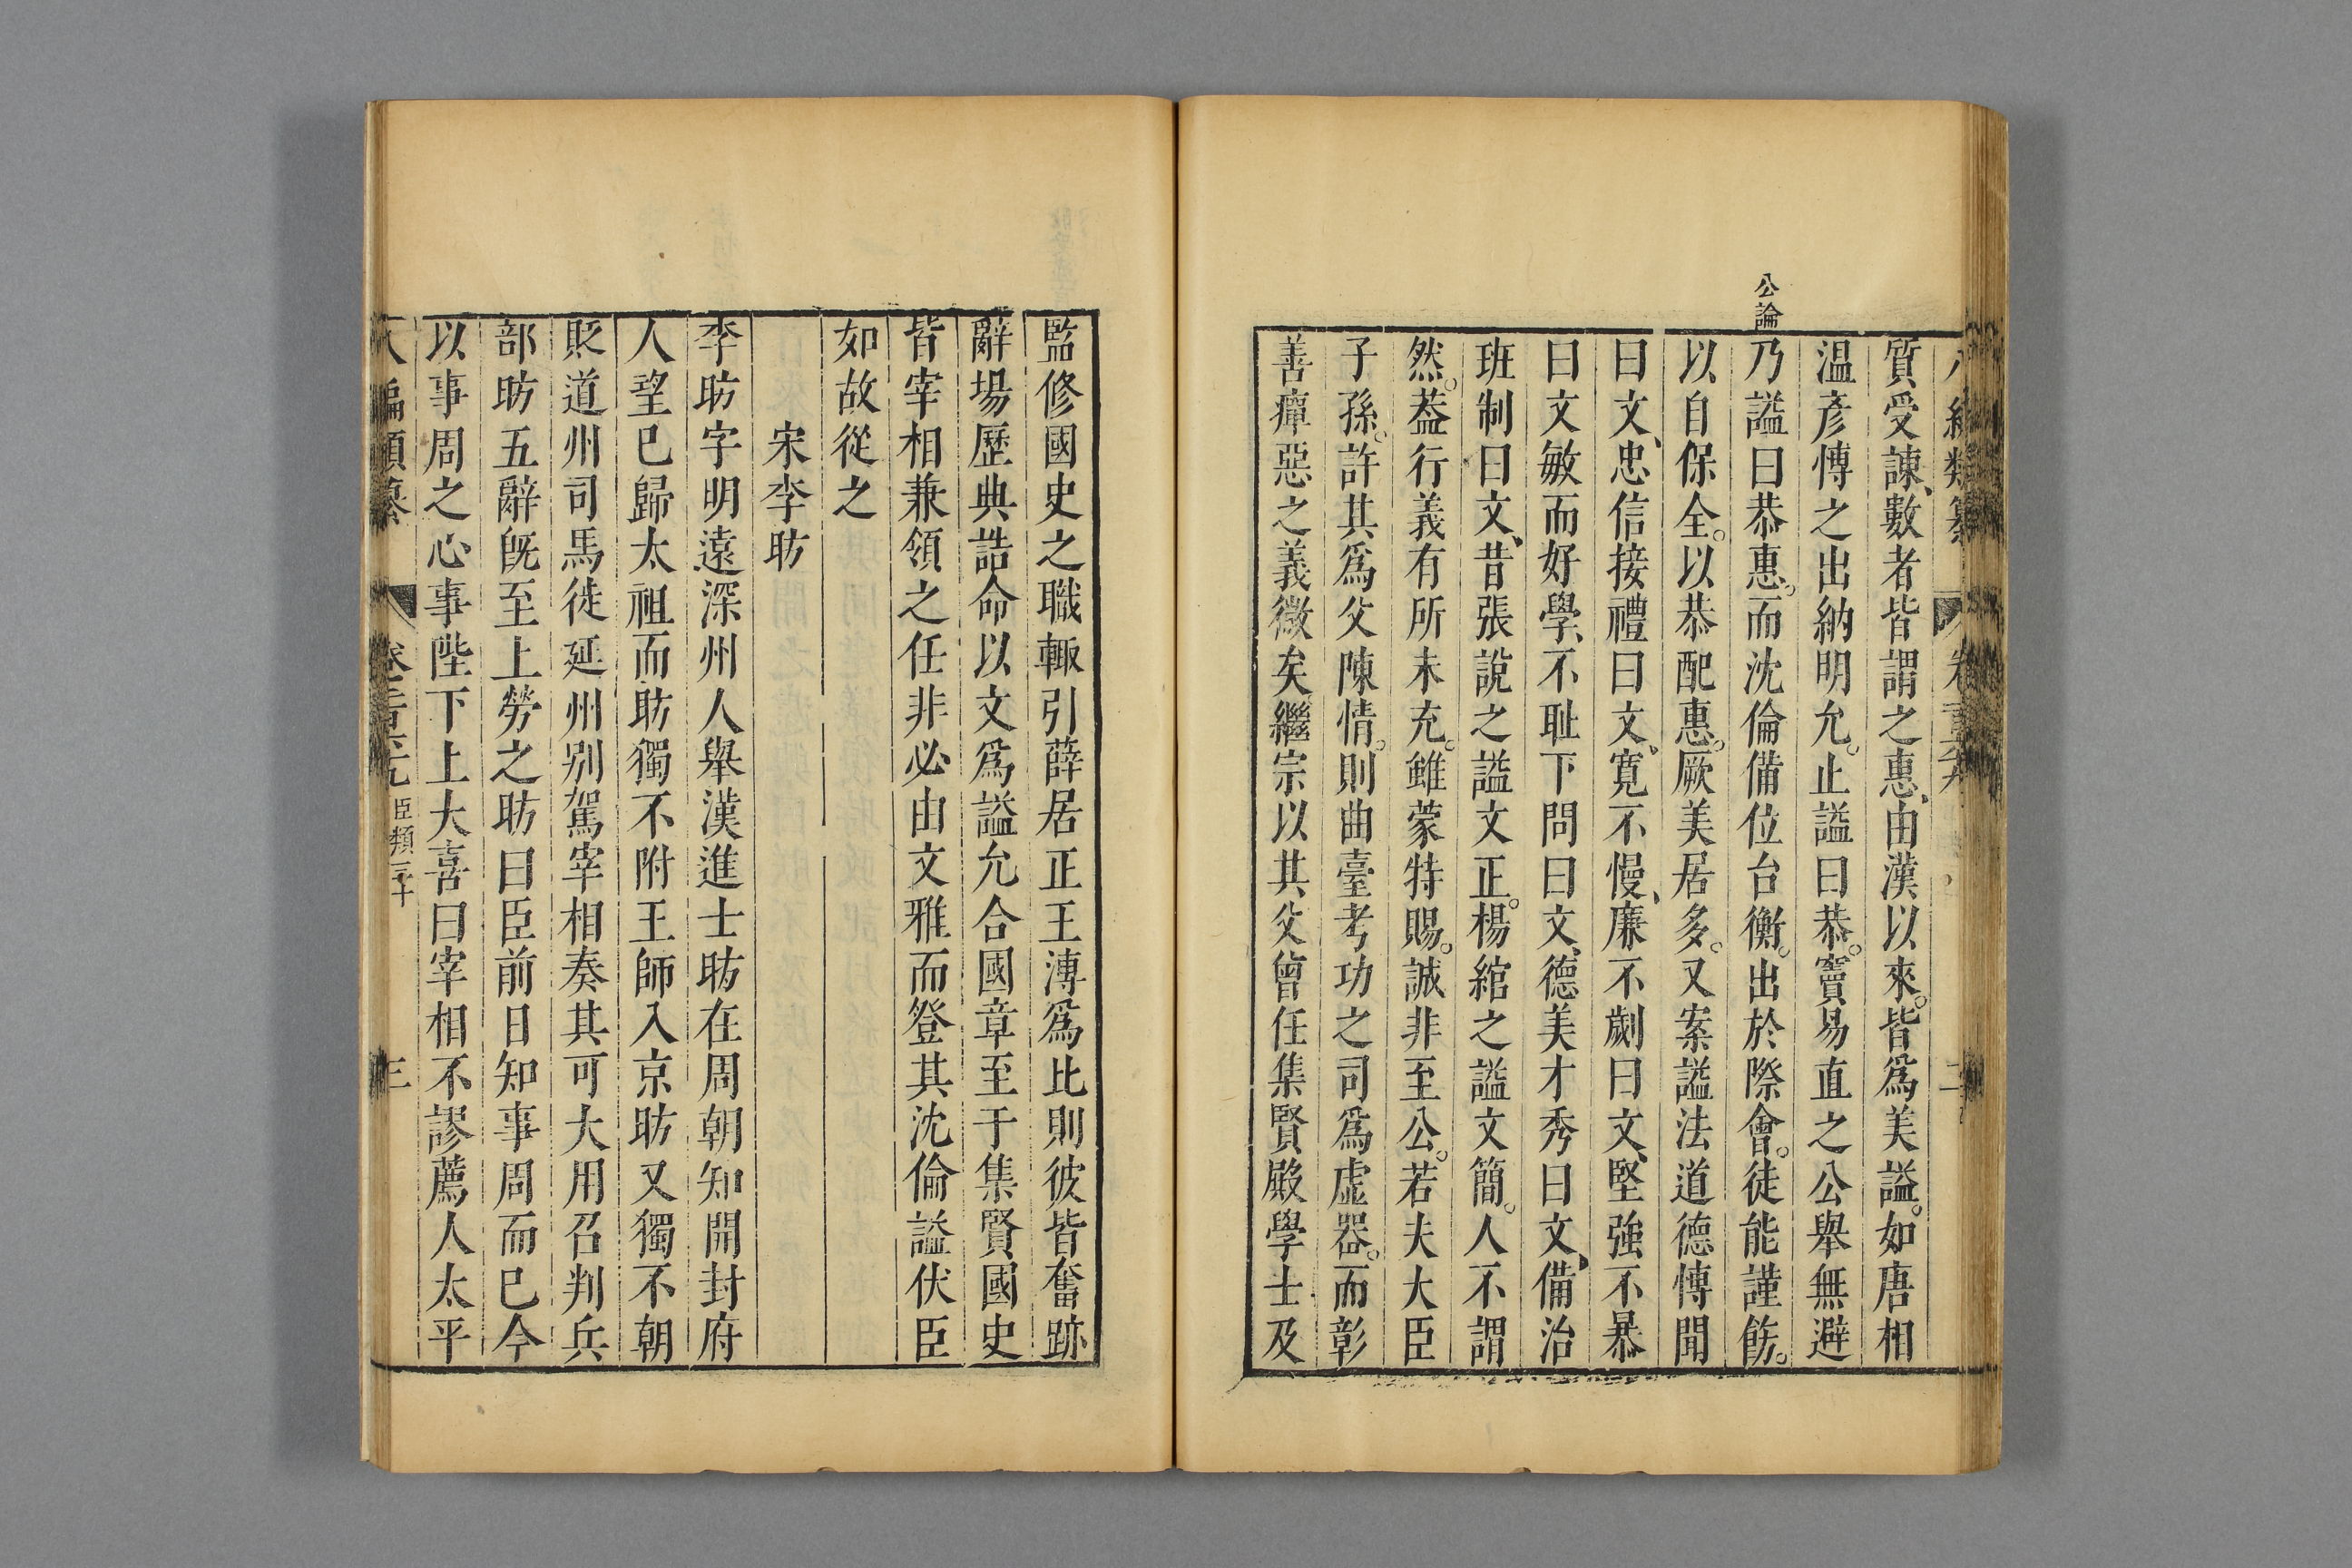 公論
質受諫、數者皆謂之惠、由漢以來。皆爲美謚。如唐相
温彥愽之出納明允。止謚曰恭。竇易直之公舉無避
乃謚曰恭惠。而沈倫備位台衡。出於際會。徒能謹餝。
以自保全。以恭配惠。厥美居多。又案謚法道德愽聞
曰文、忠信接禮曰文、寛不慢、廉不劌曰文、堅強不暴
曰文敏而好學、不耻下問曰文、德美才秀曰文、備治
班制曰文、昔張說之謚文正。楊綰之謚文簡。人不謂
然。葢行義有所未充。雖蒙特賜。誠非至公。若夫大臣
子孫。許其爲父陳情。則曲臺考功之司爲虛器。而彰
善癉惡之義微矣繼宗以其父曾任集賢殿學士及
監修國史之職輙引薛居正王溥爲比則彼皆奮跡
辭場歷典誥命以文爲謚允合國章至于集賢國史
皆宰相兼領之任非必由文雅而登其沈倫謚伏臣
如故從之
宋李昉
李昉字明遠深州人舉漢進士昉在周朝知開封府
人望已歸太祖而昉獨不附王師入京昉又獨不朝
貶道州司馬徙延州別駕宰相奏其可大用召判兵
部昉五辭旣至上勞之昉曰臣前日知事周而已今
以事周之心事陛下上大喜曰宰相不謬薦人太平
編類纂 卷 臣類二十 三